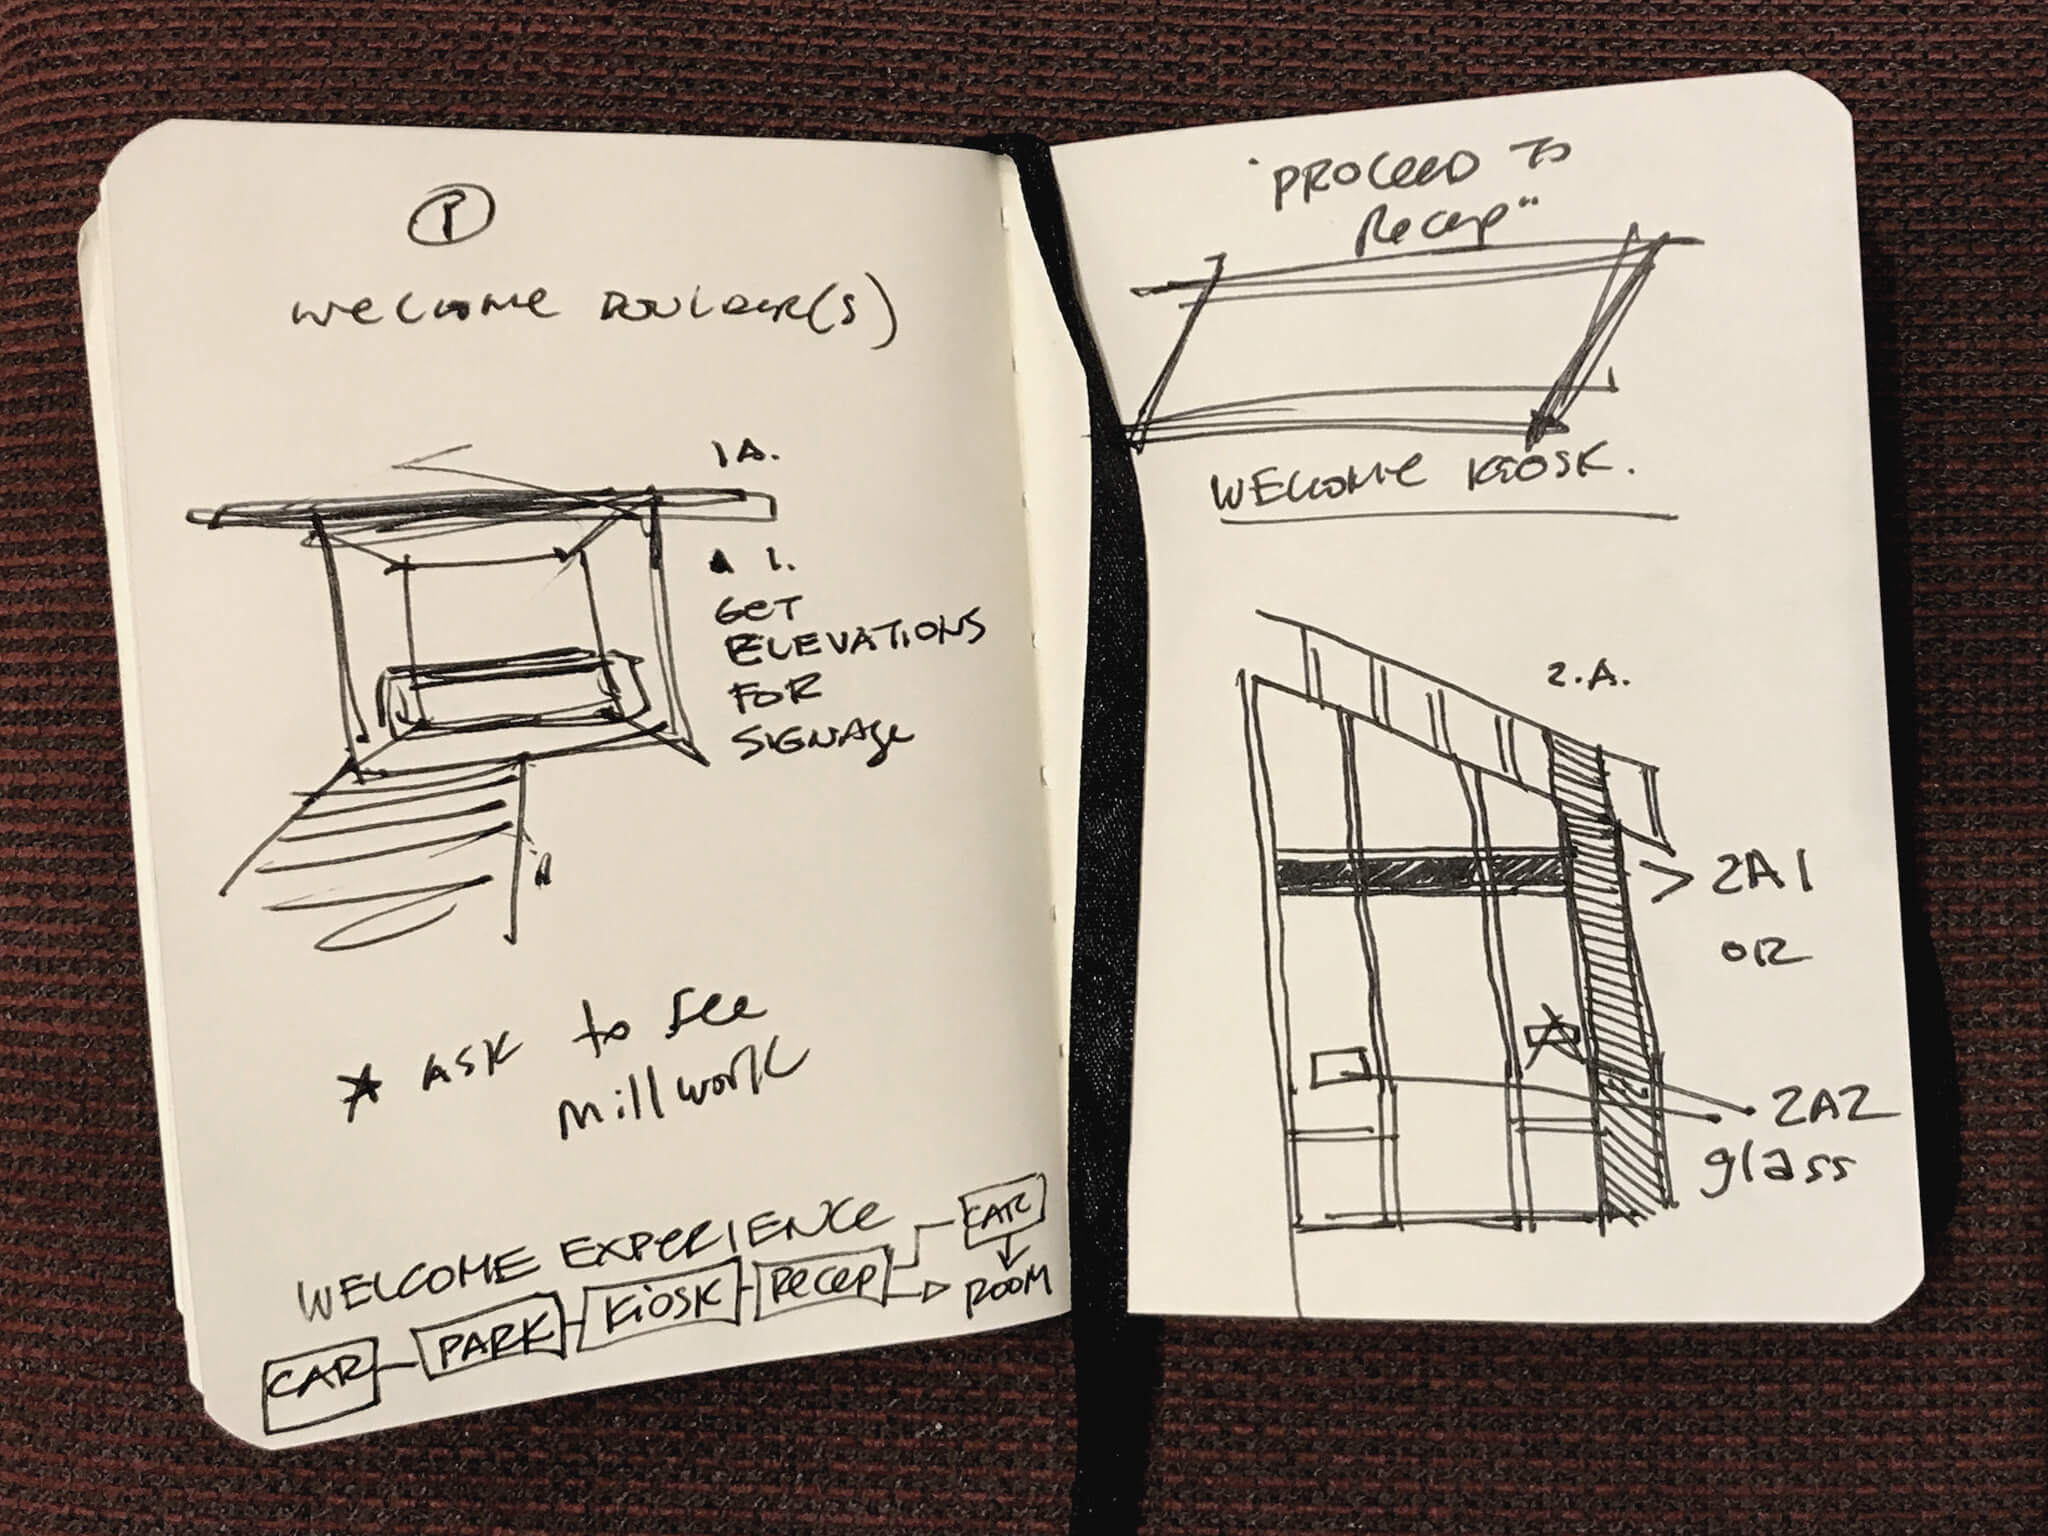 P
WELCOME BOULDER(S)
1A.
1.
GET
ELEVATIONS
FOR
SIGNAGE
ASK to see
millwork
WELCOME EXPERIENCE
CAR PARK KiOSK Recep CAR
ROOM
"PROCEED TO
Recep"
WELCOME KIOSK.
2.A.
2A1
OR
2A2
glass